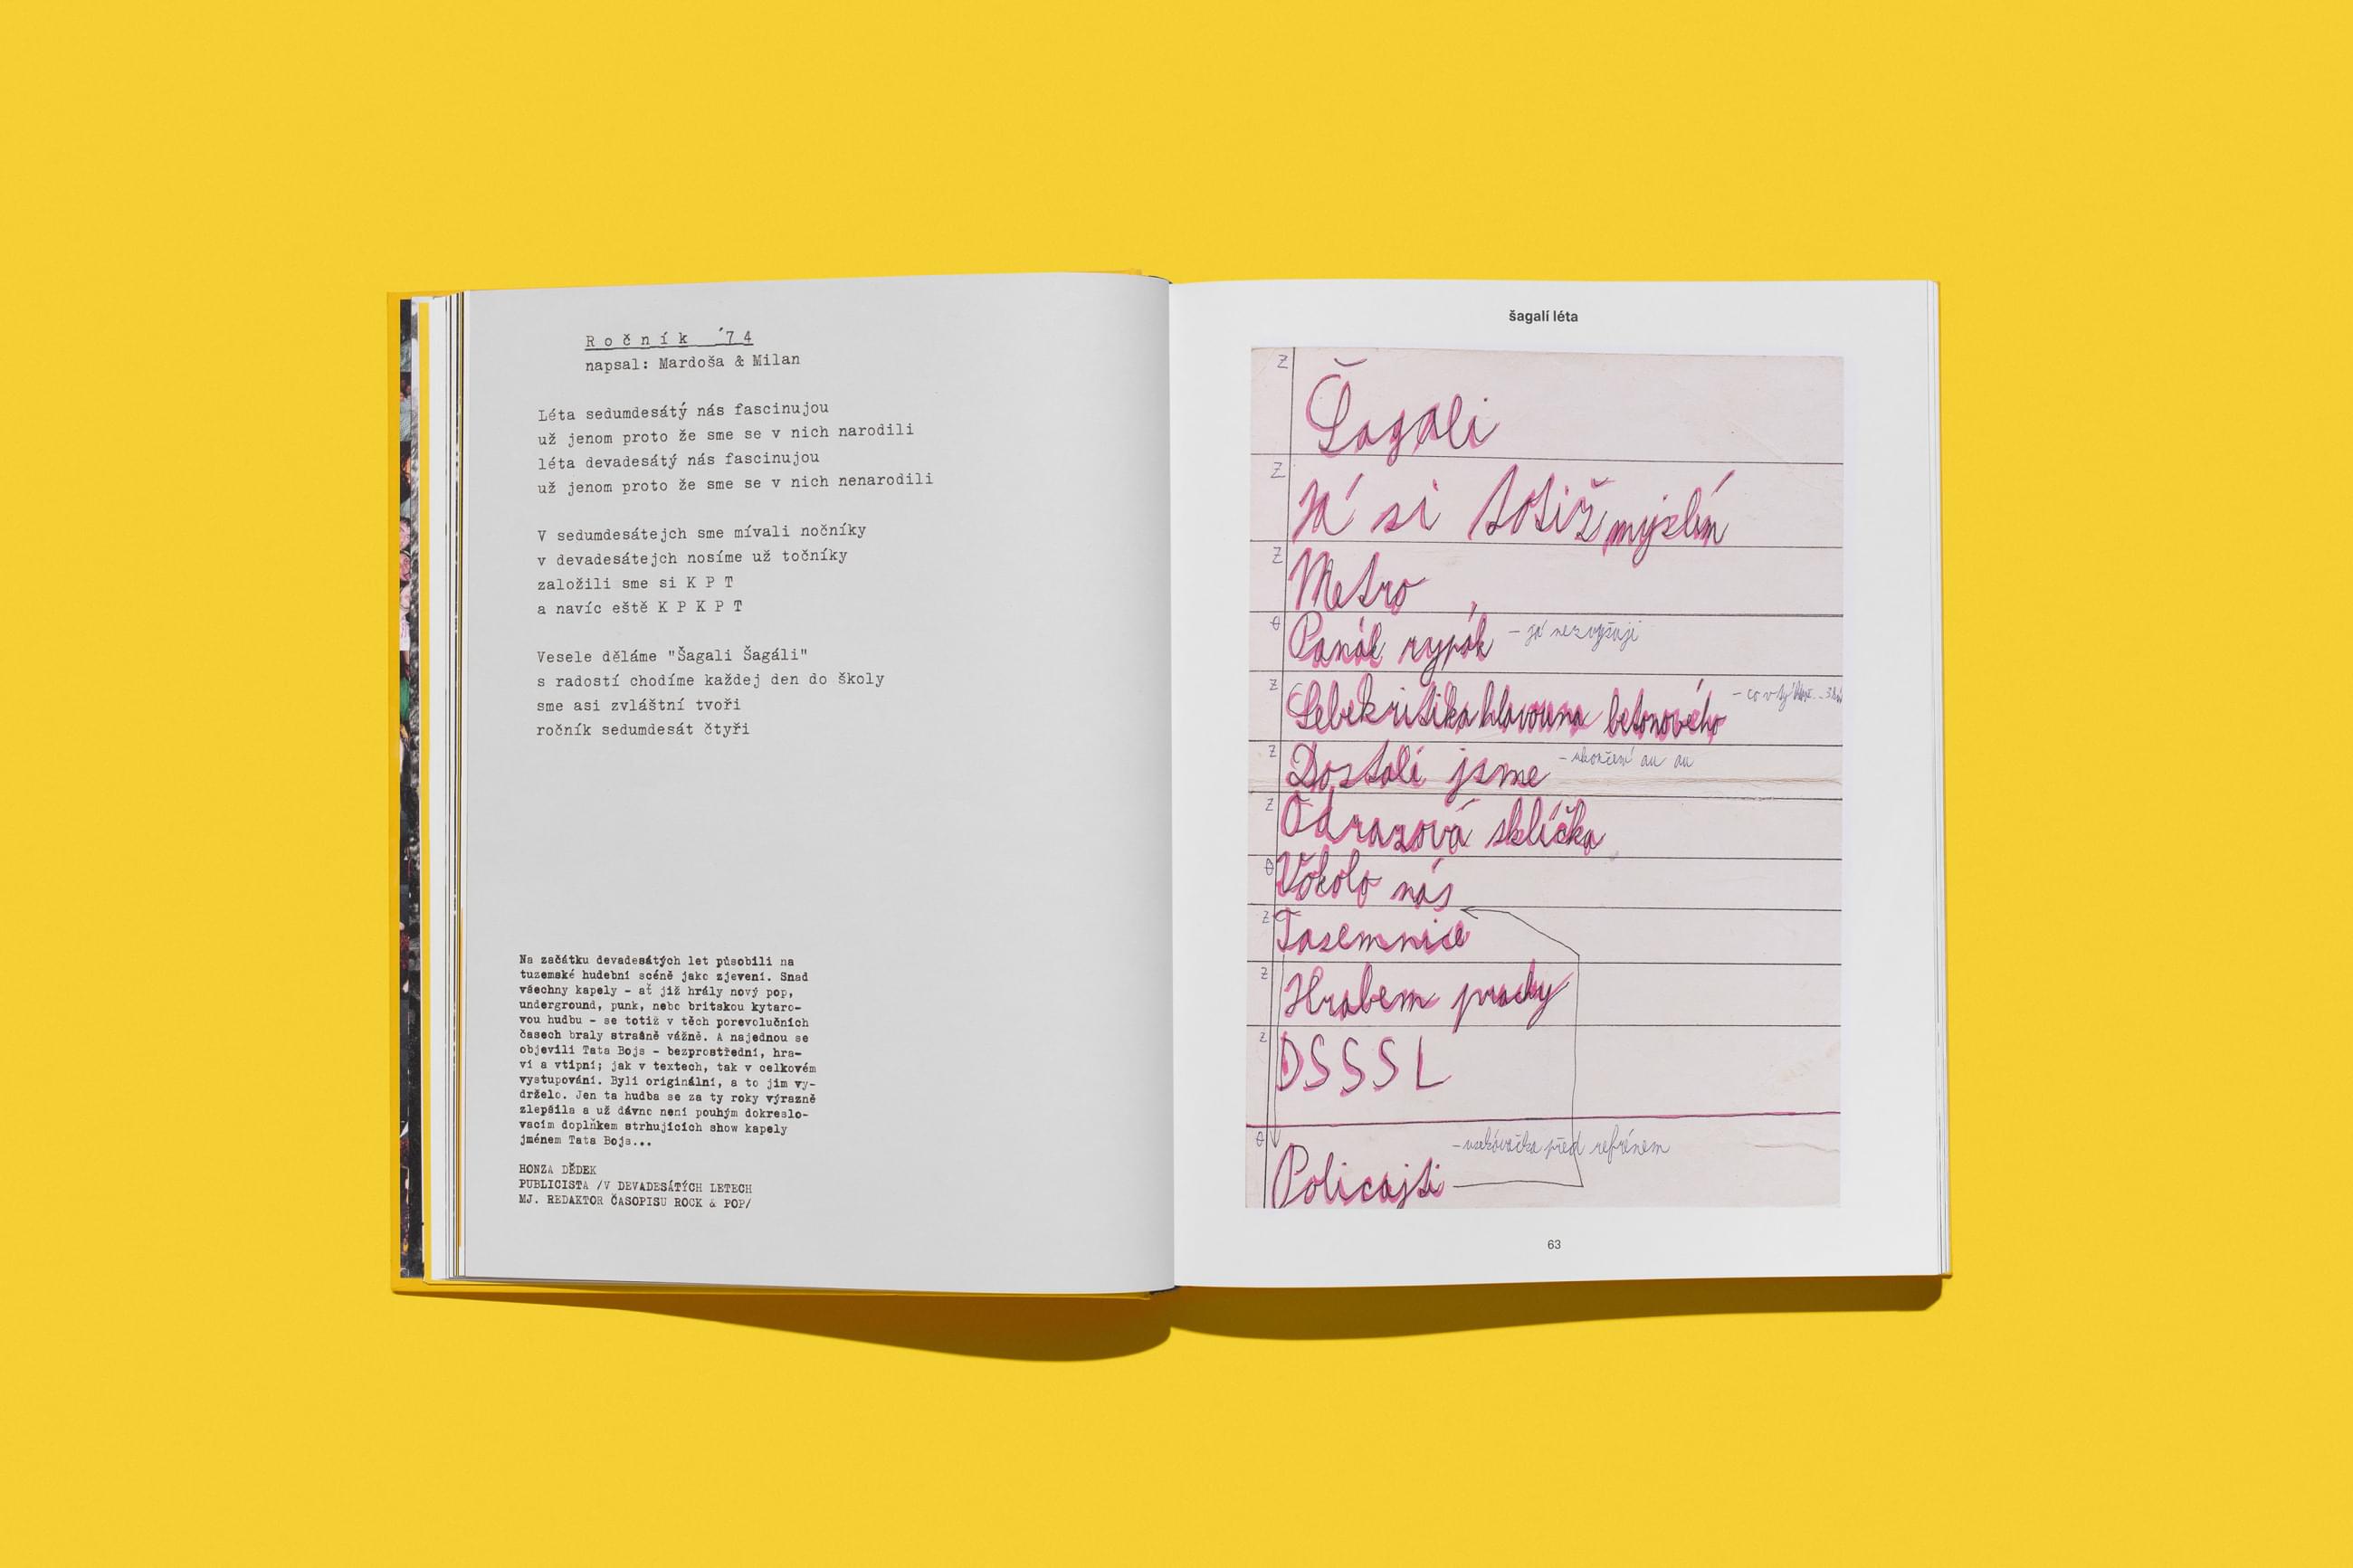 Ročník ´74
napsal: Mardoša & Milan
Léta sedumdesátý nás fascinujou
už jenom proto že sme se v nich narodili
léta devadesátý nás fascinujou
už jenom proto že sme se v nich nenarodili
V sedumdesátejch sme mívali nočníky
v devadesátejch nosíme už točníky
založili sme si K P T
a navíc eště K P K P T
Vesele děláme "Šagali Šagáli"
s radostí chodíme každej den do školy
sme asi zvláštní tvoři
ročník sedumdesát čtyři
Na začátku devadesátých let působili na
tuzemské hudební scéně jako zjevení. Snad
všechny kapely - ať již hrály nový pop,
underground, punk, nebo britskou kytaro-
vou hudbu - se totiž v těch porevolučních
časech braly strašně vážně. A najednou se
objevili Tata Bojs - bezprostřední, hra-
ví a vtipní; jak v textech, tak v celkovém
vystupování. Byli originální, a to jim vy-
drželo. Jen ta hudba se za ty roky výrazně
zlepšila a už dávno není pouhým dokreslo-
vacím doplňkem strhujících show kapely
jménem Tata Bojs...
HONZA DĚDEK
PUBLICISTA /V DEVADESÁTÝCH LETECH
MJ. REDAKTOR ČASOPISU ROCK & POP/
šagalí léta
Z Šagali
Z Já si totiž myslím
Z Metro
θ Panák rypák - já nezvyšuji
Z Sebekritika hlavouna betonového - co v tý
Z Dostali jsme - ukončení au au
Z Odrazová sklíčka
θ Vokolo nás
Z Tasemnice
Z Hrabem prachy
Z DSSSL
θ Policajti - vsekávačka před refrénem
63